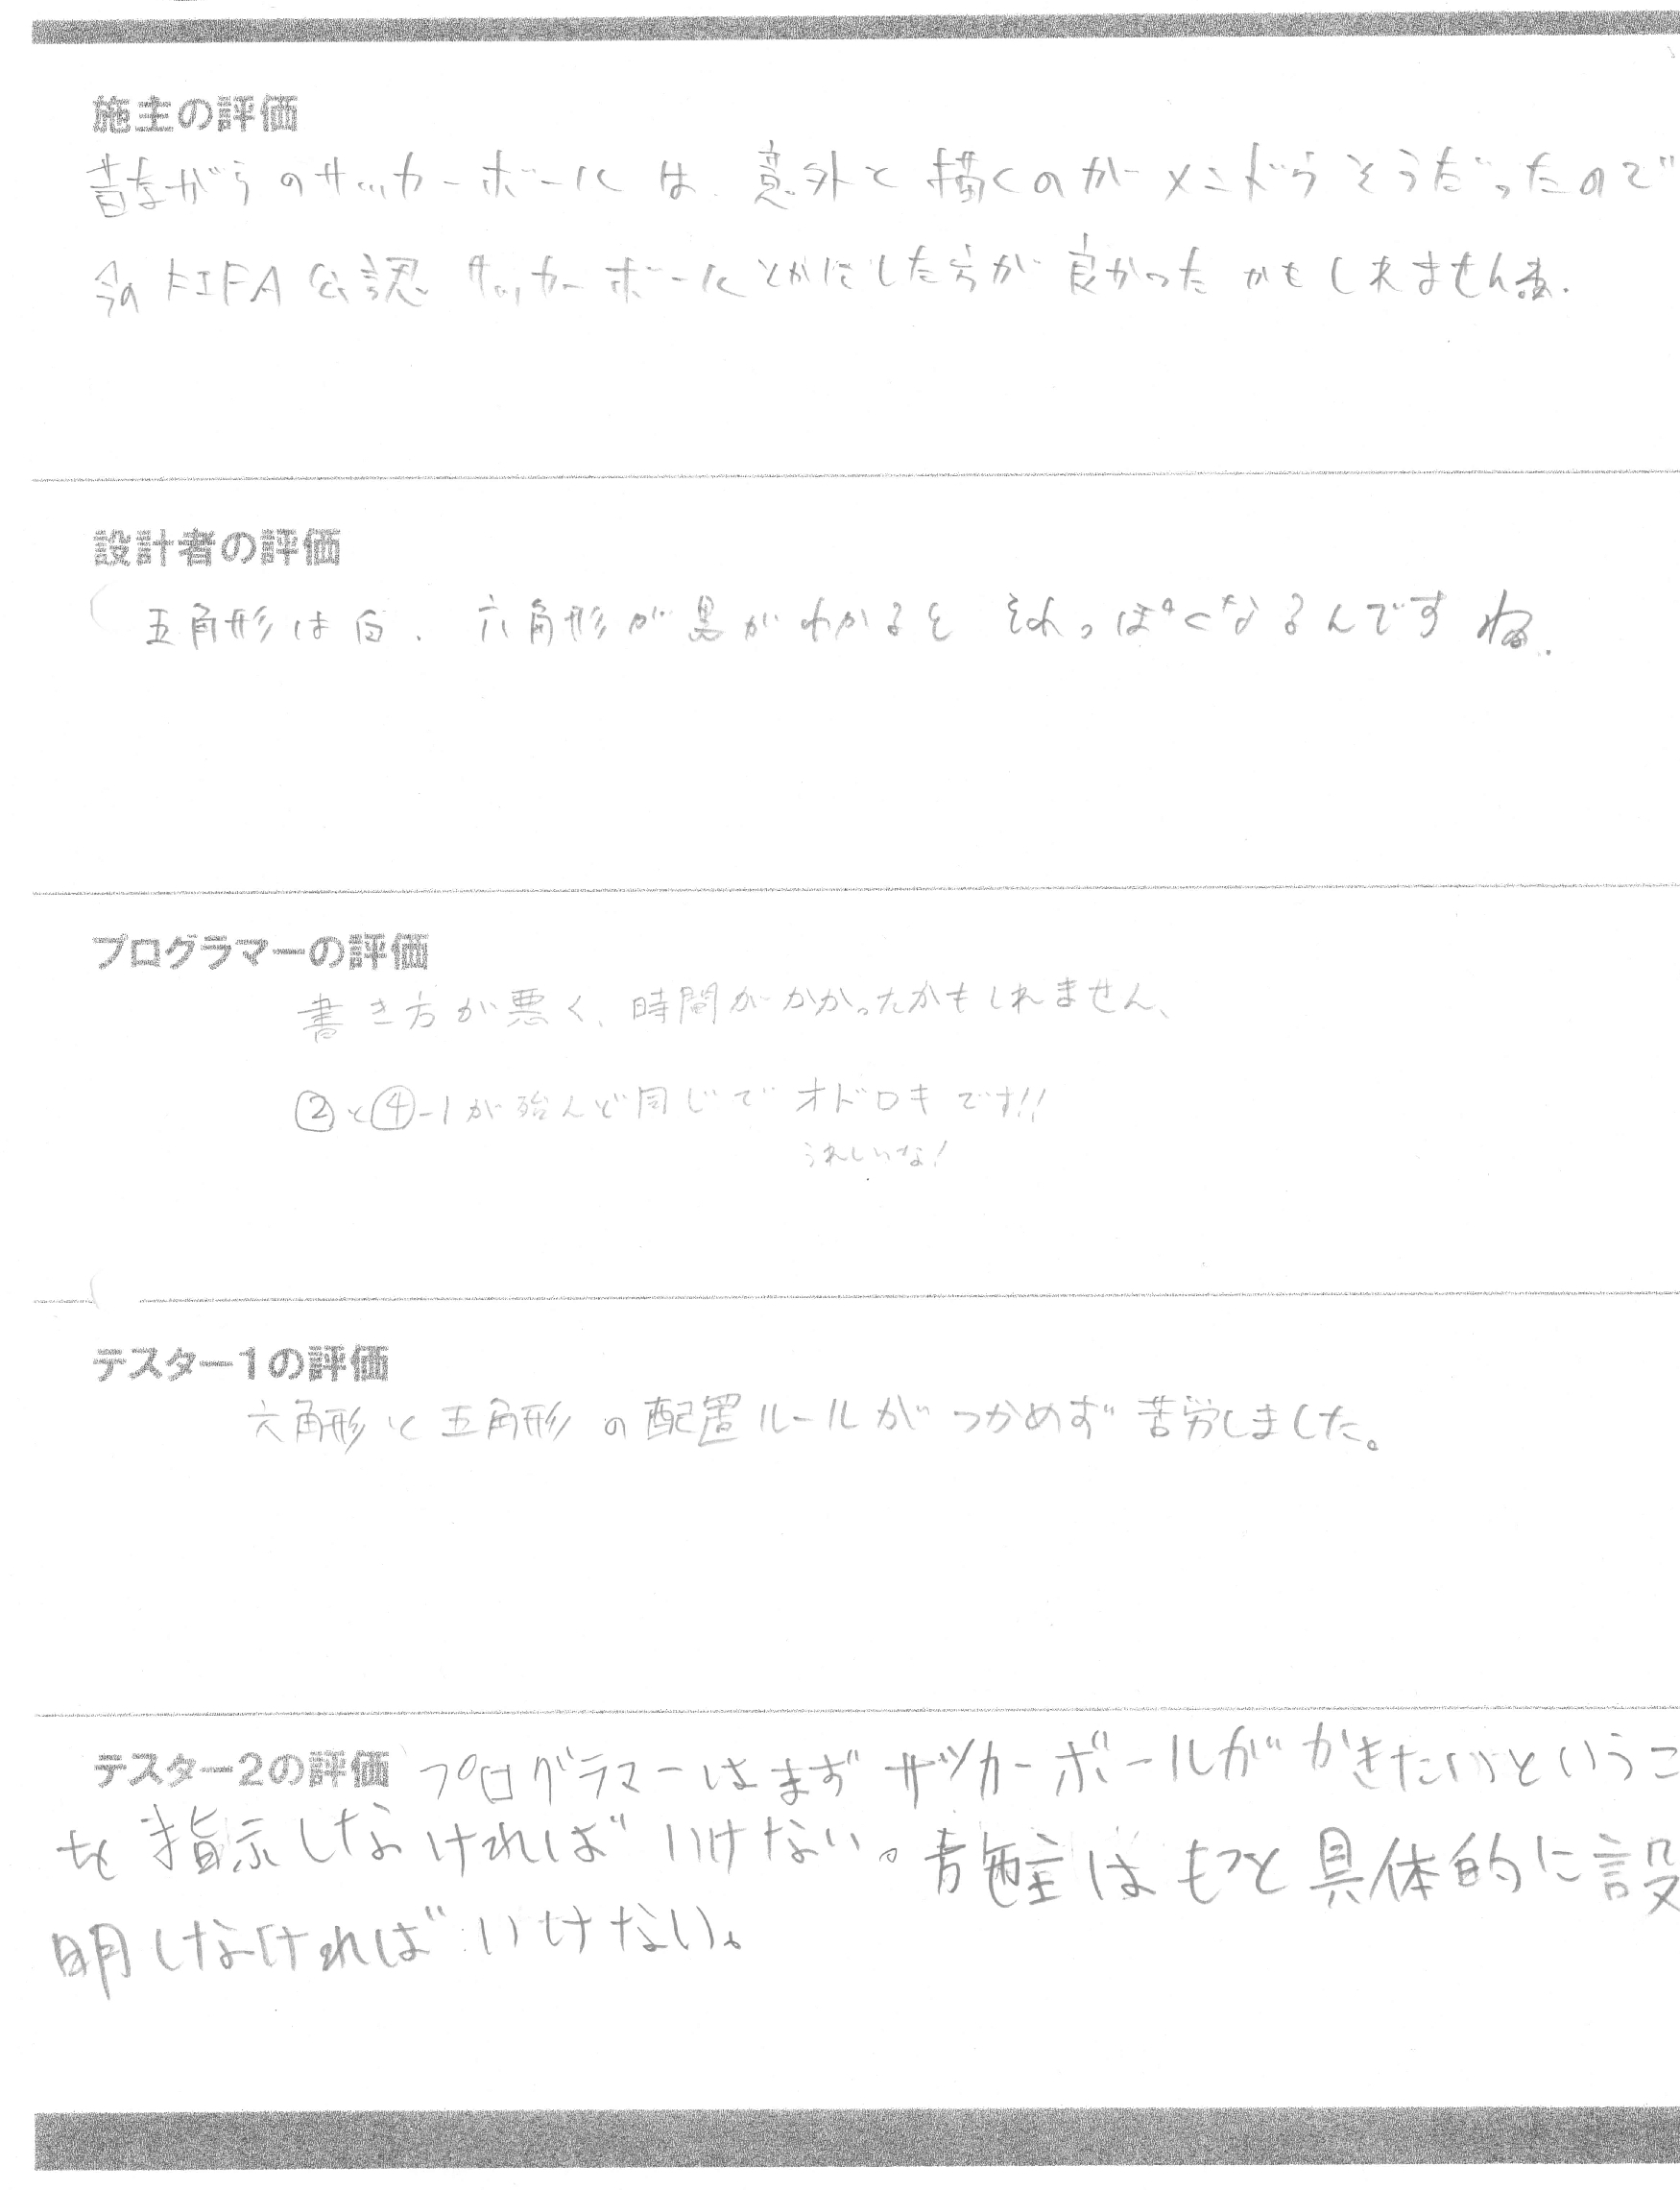 施主の評価
昔ながらのサッカーボールは、意外と描くのがメンドウそうだったので
今のFIFA公認サッカーボールとかにした方が良かったかもしれませんね.
設計者の評価
五角形は白、六角形が黒がわかるとそれっぽくなるんですね.
プログラマーの評価
書き方が悪く、時間がかかったかもしれません、
②と④-1が殆んど同じでオドロキです!!
うれしいな!
テスター1の評価
六角形と五角形の配置ルールがつかめず苦労しました。
テスター2の評価 プログラマーはまずサッカーボールがかきたいというこ
を指示しなければいけない。施主はもっと具体的に説
明しなければいけない。